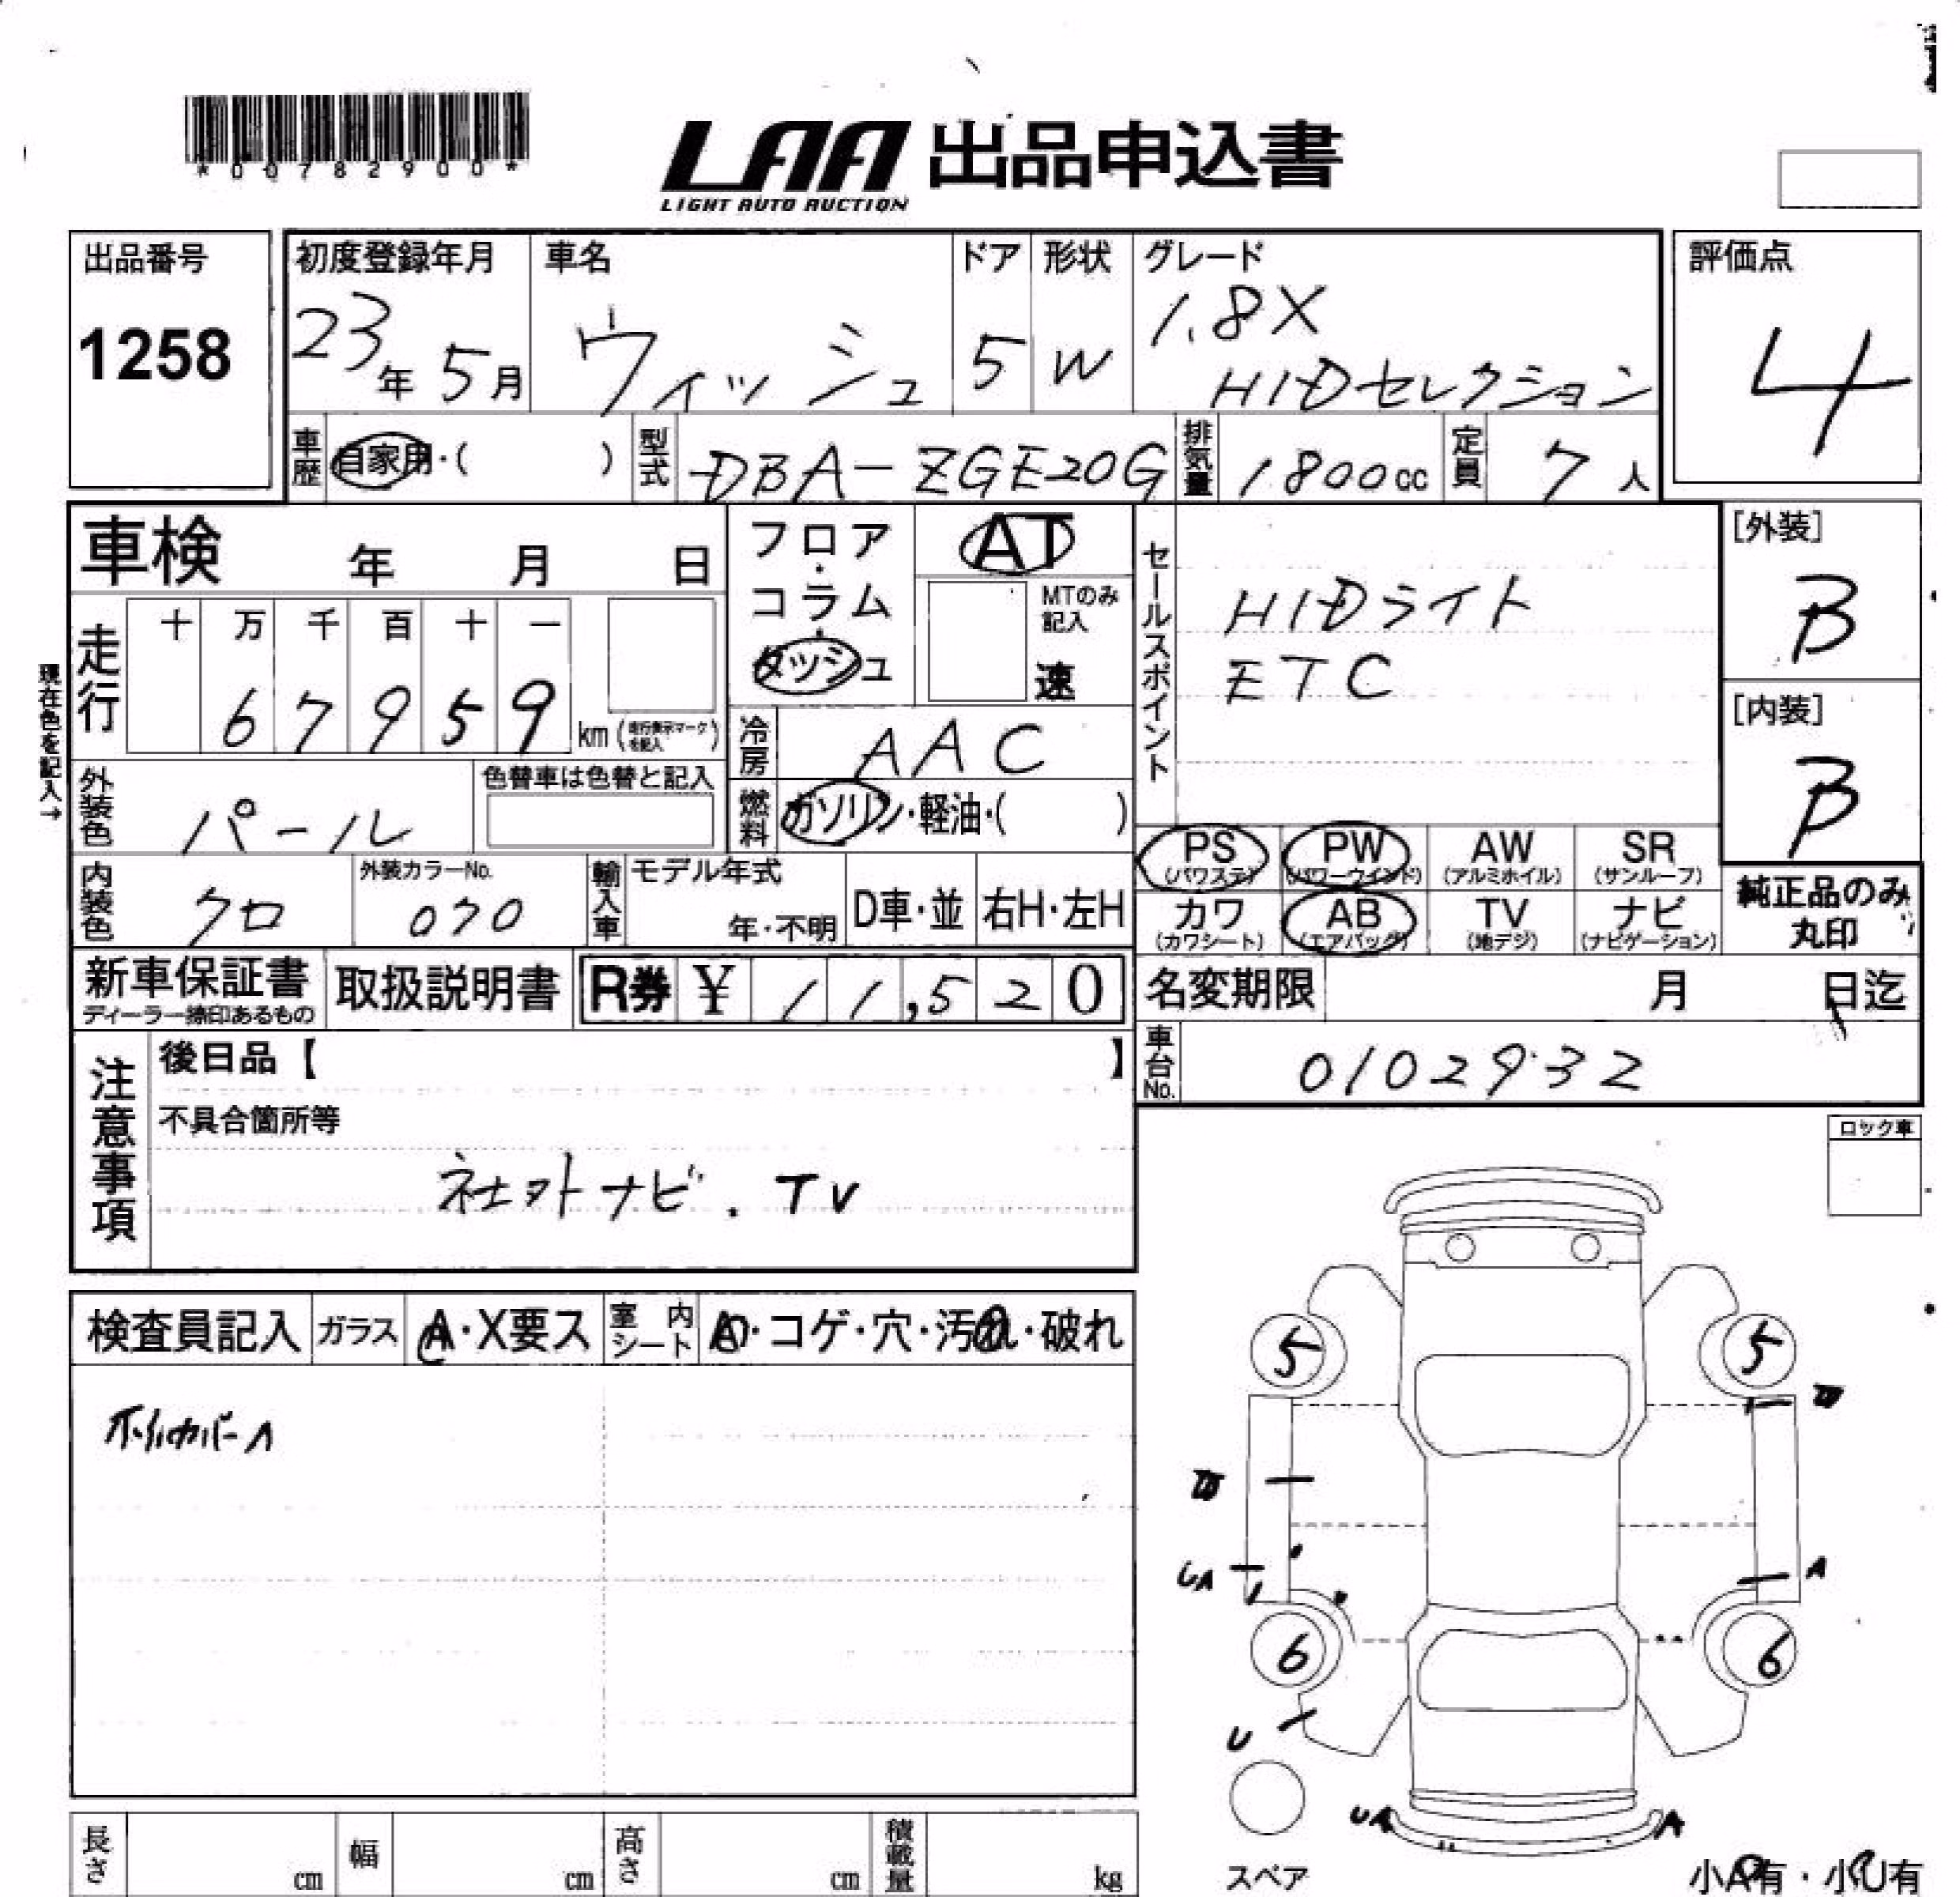 *00782900*
LAA 出品申込書
LIGHT AUTO AUCTION
出品番号
1258
初度登録年月
23年 5月
車名
ウィッシュ
ドア
5
形状
W
グレード
1.8X
HIDセレクション
評価点
4
車歴 自家用・( )
型式 DBA-ZGE20G
排気量 1800cc
定員 7人
車検 年 月 日
フロア・コラム・ダッシュ
AT
MTのみ記入
速
現在色を記入→
走行
十 万 千 百 十 一
6 7 9 5 9 km
セールスポイント
HIDライト
ETC
[外装]
B
[内装]
B
冷房 AAC
燃料 ガソリン・軽油・( )
外装色 パール
色替車は色替と記入
内装色 クロ
外装カラーNo.
070
輸入車 モデル年式
年・不明
D車・並
右H・左H
PS (パワステ)
PW (パワーウインド)
AW (アルミホイル)
SR (サンルーフ)
カワ (カワシート)
AB (エアバッグ)
TV (地デジ)
ナビ (ナビゲーション)
純正品のみ
丸印
新車保証書
ディーラー捺印あるもの
取扱説明書
R券 ¥ 11,520
名変期限 月 日迄
車台No. 0102932
注意事項
後日品【 】
不具合箇所等
社外ナビ. TV
ロック車
検査員記入
ガラス A・X要ス
室内シート
・コゲ・穴・汚れ・破れ
ホイルカバーA
5
5
UA
A
6
6
U
UA
A
スペア
小A有・小U有
長さ cm
幅 cm
高さ cm
積載量 kg